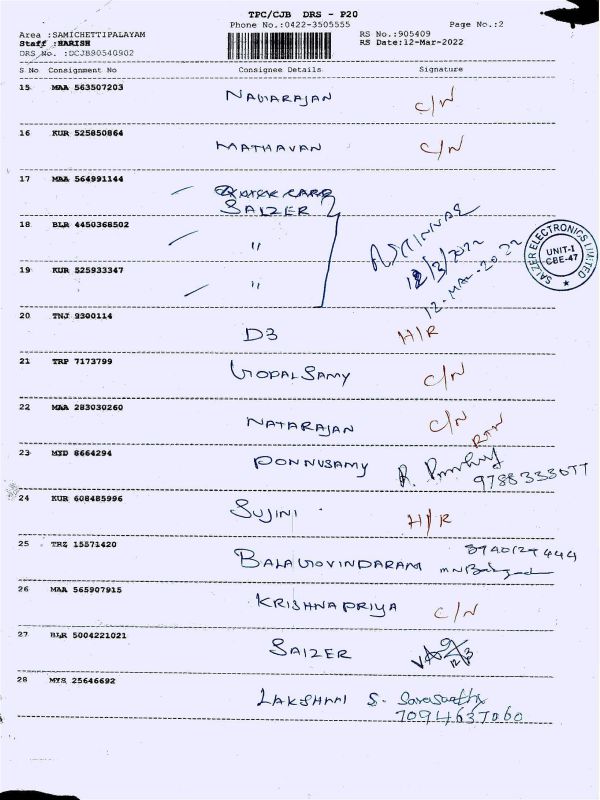 TPC/CJB DRS - P20
Phone No.:0422-3505555 Page No.:2
Area :SAMICHETTIPALAYAM RS No.:905409
Staff :HARISH RS Date:12-Mar-2022
DRS No. :DCJB90540902
S No Consignment No Consignee Details Signature
15 MAA 563507203 NAVARAJAN C/N
16 KUR 525850864 MATHAVAN C/N
17 MAA 564991144
SAIZER
18 BLR 4450368502 "
12/3/2022
19 KUR 525933347 "
12-MAR-2022
SAIZER ELECTRONICS LIMITED UNIT-I CBE-47
20 TNJ 9300114 D3 H/R
21 TRP 7173799 GOPALSAMY C/N
22 MAA 283030260 NATARAJAN C/N
RTN
23 MYD 8664294 PONNUSAMY R.
9788333077
24 KUR 608485996 SUJINI H/R
25 TRZ 15571420 BALAGOVINDARAM
26 MAA 565907915 KRISHNAPRIYA C/N
27 BLR 5004221021 SAIZER
12/3
28 MYS 25646692 LAKSHMI S.
7094637060